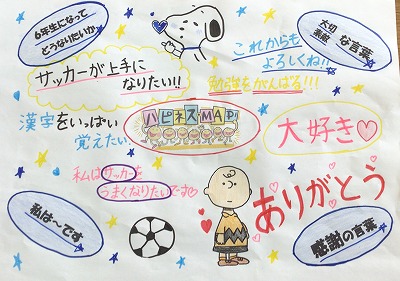 6年生になって
どうなりたいか
大切な言葉
これからも
よろしくね!!
サッカーが上手に
なりたい!!
勉強をがんばる!!!
漢字をいっぱい
覚えたい
ハピネスMAP
大好き
私はサッカーを
うまくなりたいです
ありがとう
私は〜です
感謝の言葉